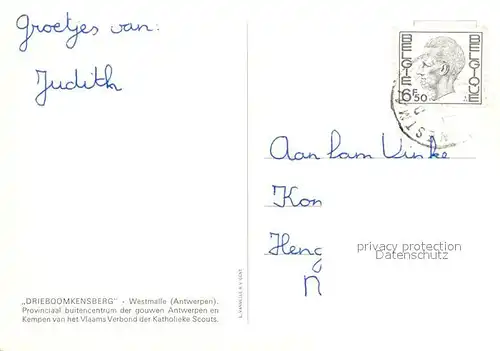 Groetjes van:
Judith
BELGIE BELGIQUE
6F50
Aan fam Vinke
Kon
Heng
n
privacy protection
Akpool.de
„DRIEBOOMKENSBERG" - Westmalle (Antwerpen).
Provinciaal buitencentrum der gouwen Antwerpen en
Kempen van het Vlaams Verbond der Katholieke Scouts.